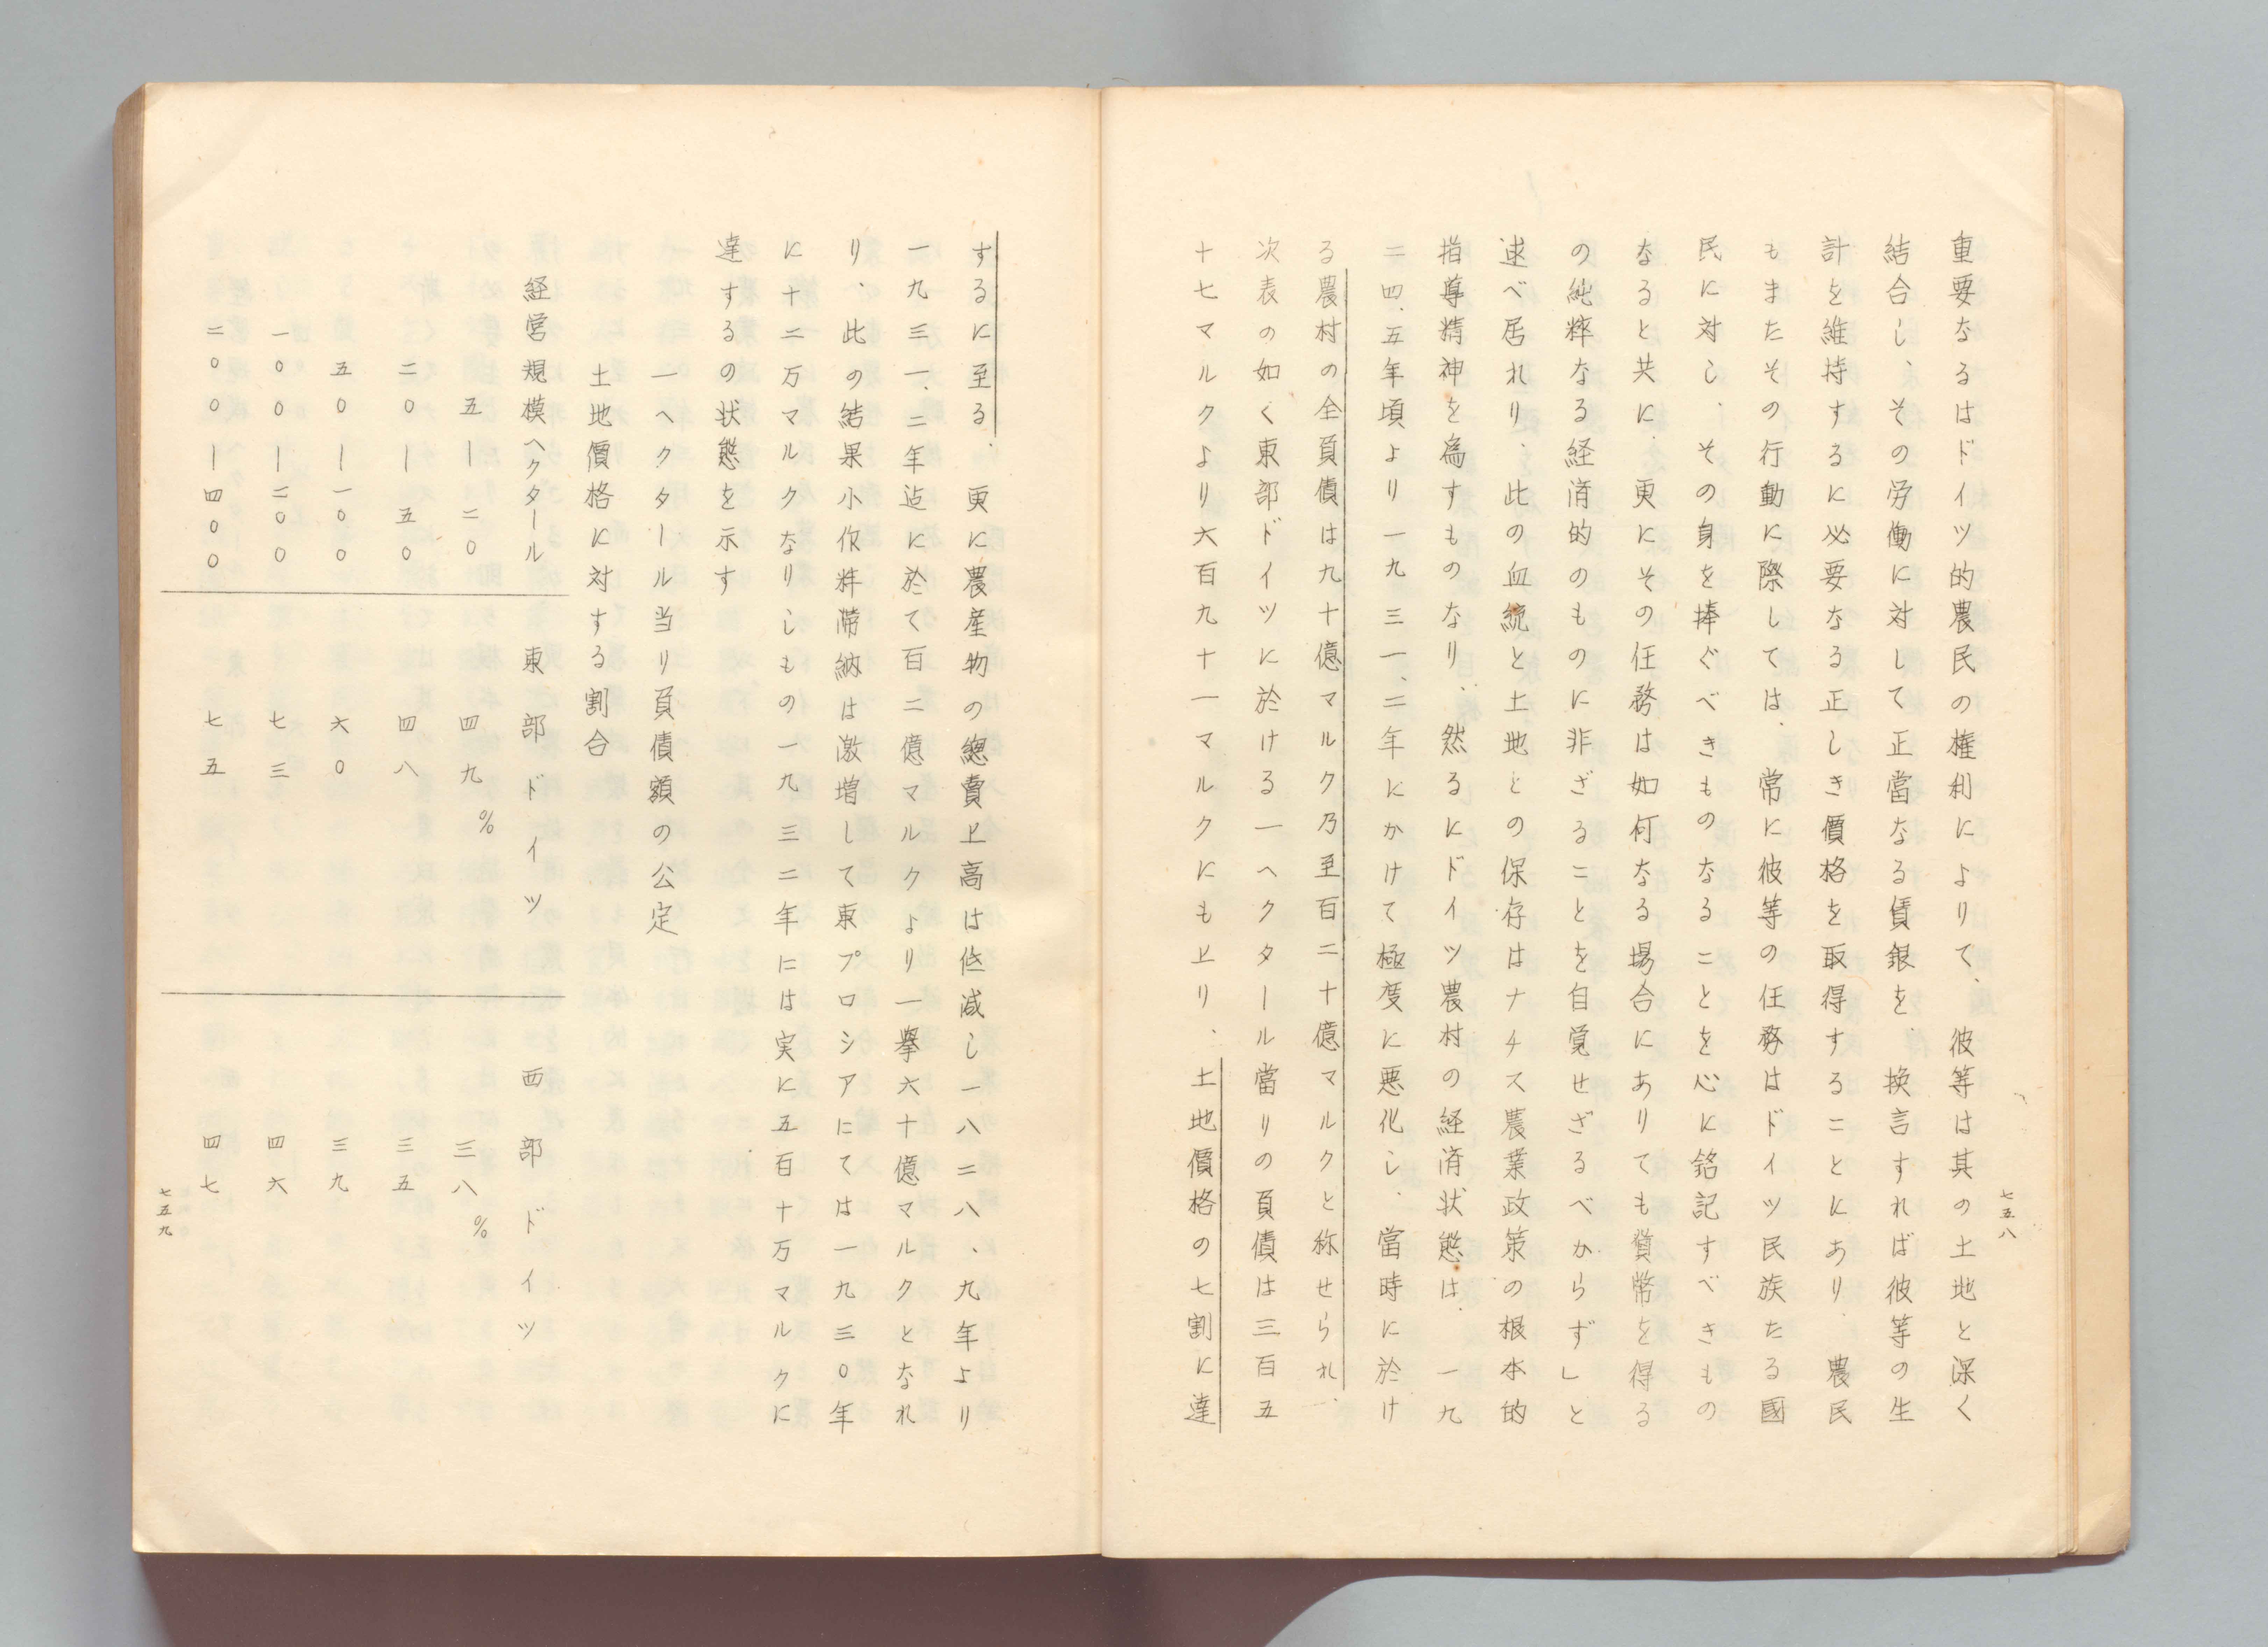 重要なるはドイツ的農民の権利によりて、彼等は其の土地と深く
結合し、その労働に対して正當なる賃銀を、換言すれば彼等の生
計を維持するに必要なる正しき價格を取得することにあり、農民
もまたその行動に際しては、常に彼等の任務はドイツ民族たる國
民に対し、その身を捧ぐべきものなることを心に銘記すべきもの
なると共に、更にその任務は如何なる場合にありても貨幣を得る
の純粹なる経済的のものに非ざることを自覚せざるべからず」と
述べ居れり、此の血統と土地との保存はナチス農業政策の根本的
指導精神を為すものなり、然るにドイツ農村の経済状態は、一九
二四、五年頃より一九三一、二年にかけて極度に悪化し、當時に於け
る農村の全負債は九十億マルク乃至百二十億マルクと称せられ、
次表の如く東部ドイツに於ける一ヘクタール當りの負債は三百五
十七マルクより六百九十一マルクにも上り、土地價格の七割に達
七五八
するに至る、更に農産物の總賣上高は低減し一八二八、九年より
一九三一、二年迄に於て百二億マルクより一擧六十億マルクとなれ
り、此の結果小作料滞納は激増して東プロシアにては一九三〇年
に十二万マルクなりしもの一九三二年には実に五百十万マルクに
達するの状態を示す
一ヘクタール当り負債額の公定
土地價格に対する割合
経営規模ヘクタール 東部ドイツ 西部ドイツ
五―二〇 四九% 三八%
二〇―五〇 四八 三五
五〇―一〇〇 六〇 三九
一〇〇―二〇〇 七三 四六
二〇〇―四〇〇 七五 四七
七五九